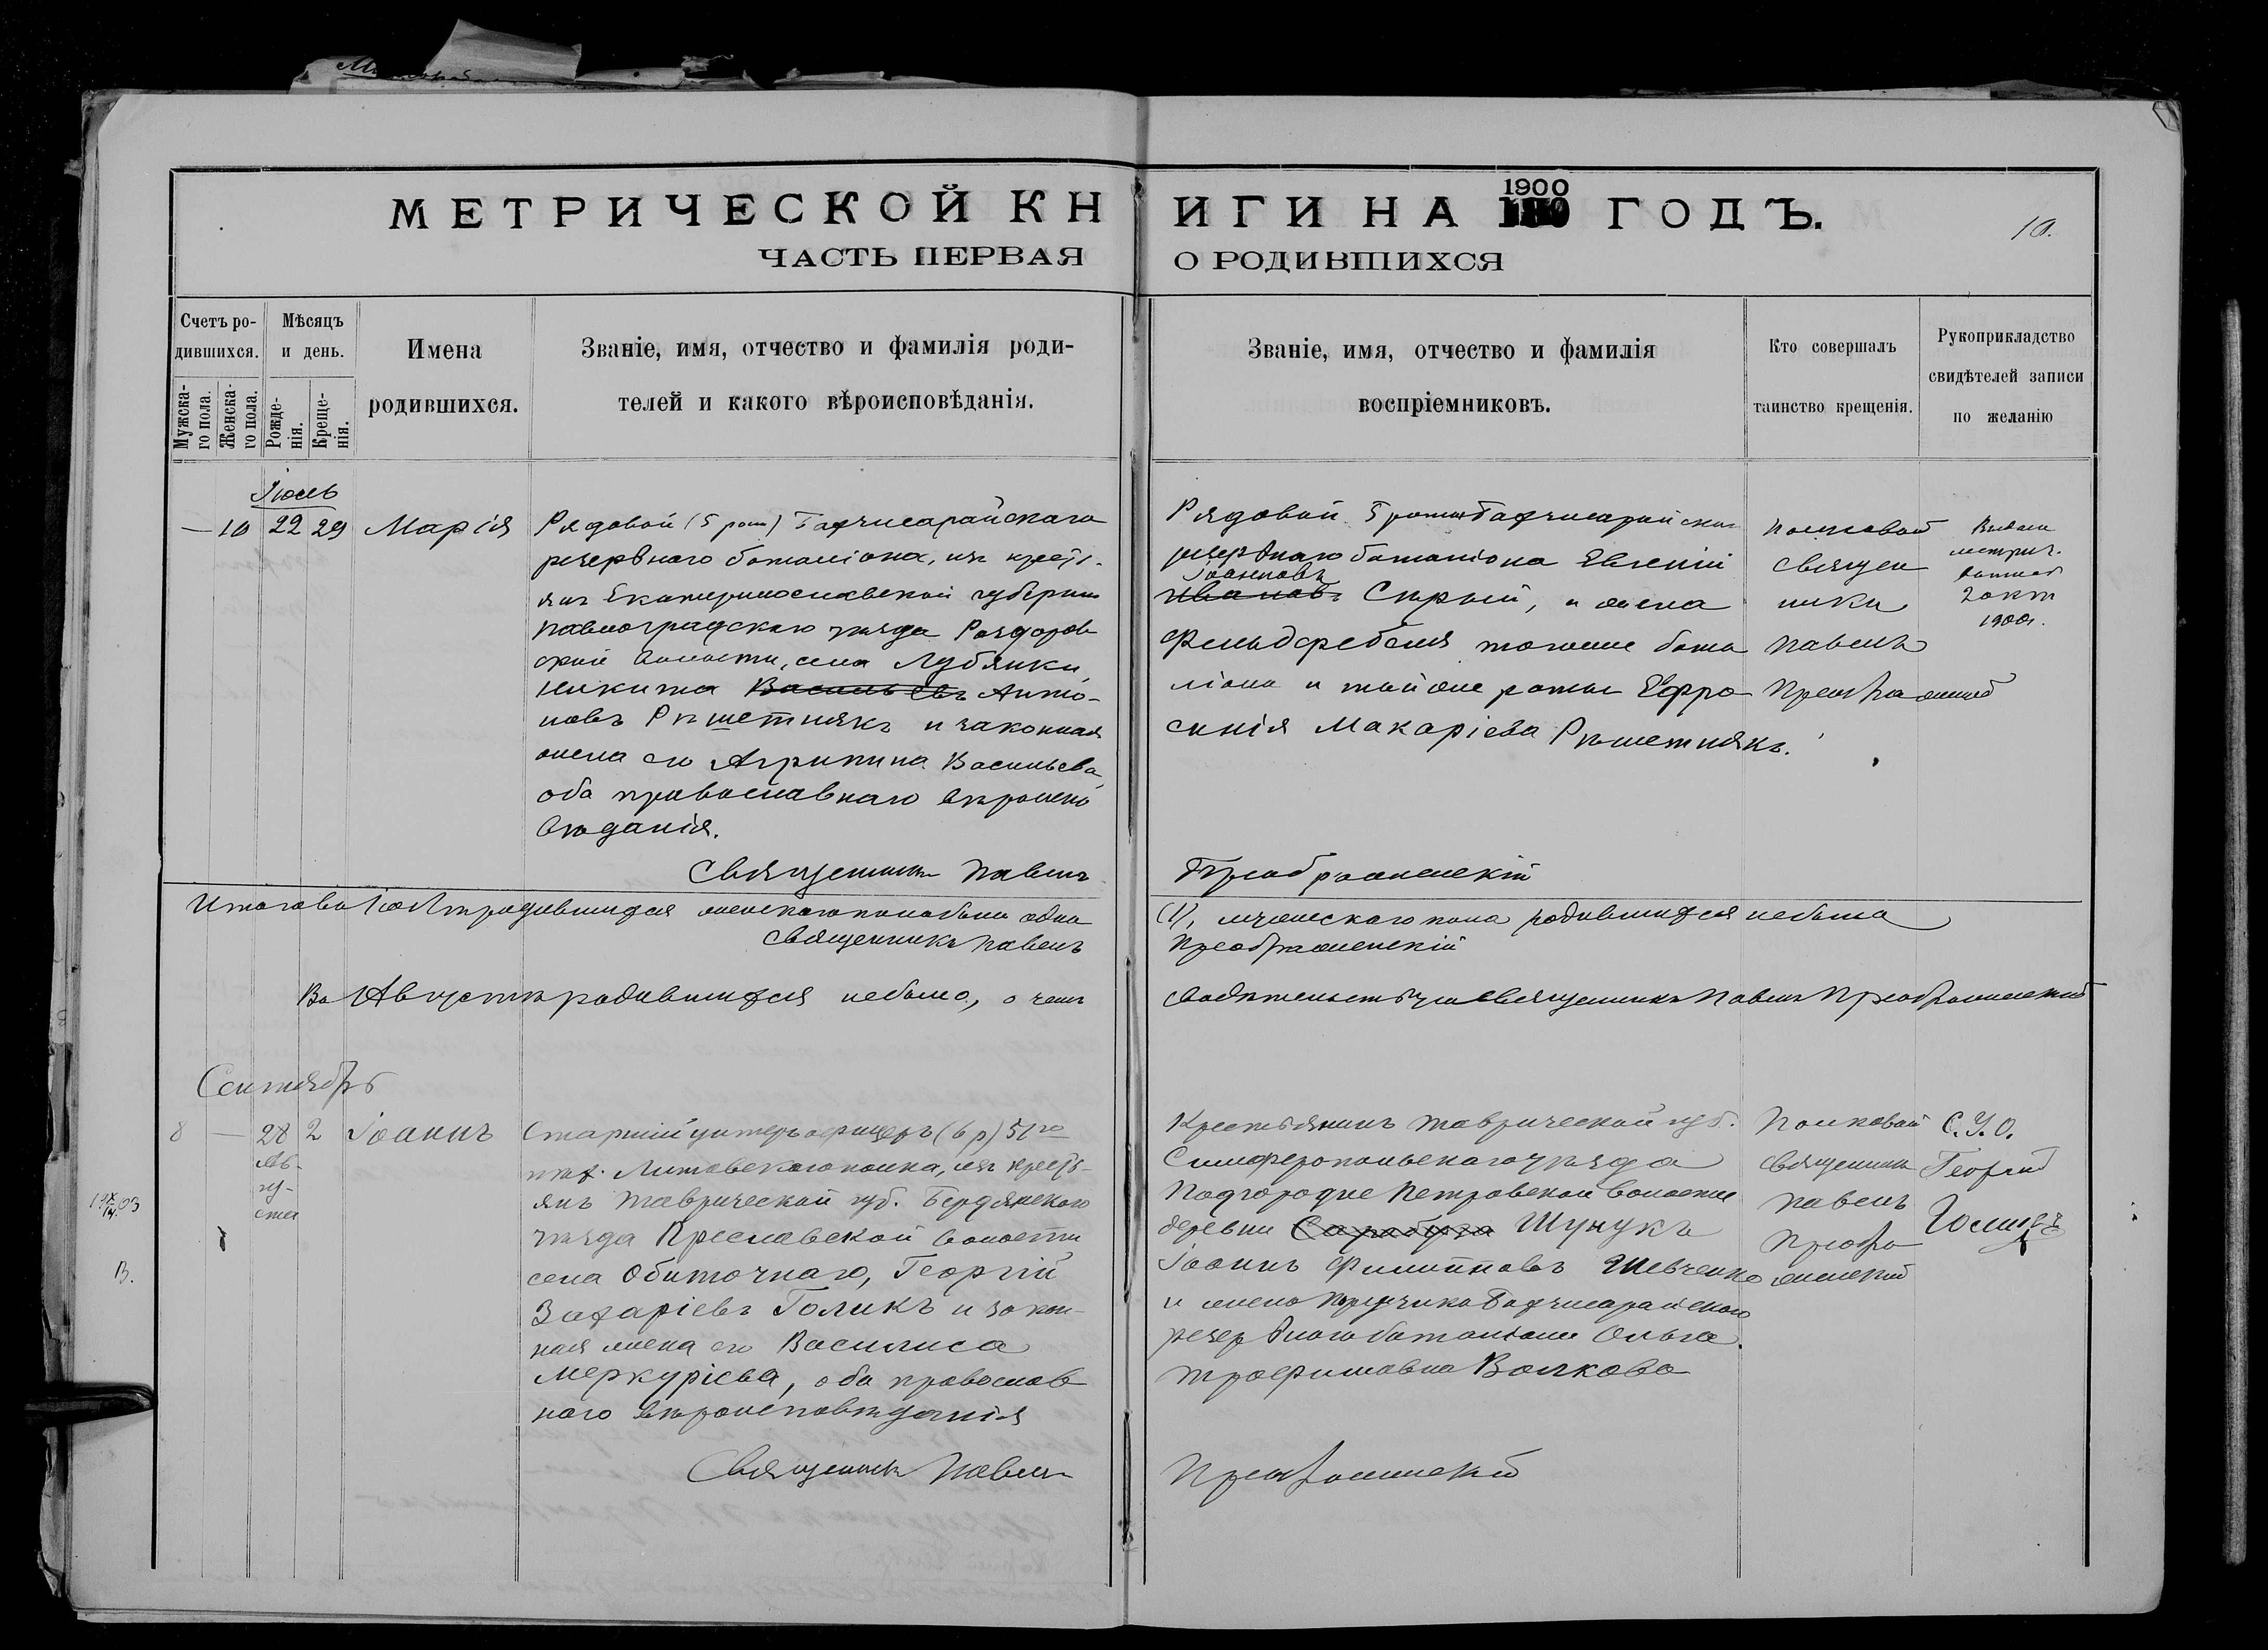 МЕТРИЧЕСКОЙ КНИГИ НА 1900 ГОДЪ.
10.
ЧАСТЬ ПЕРВАЯ О РОДИВШИХСЯ
Счетъ родившихся.
Мужска-
го пола.
Женска-
го пола.
Мѣсяцъ
и день.
Рожде-
нія.
Креще-
нія.
Имена
родившихся.
Званіе, имя, отчество и фамилія роди-
телей и какого вѣроисповѣданія.
Званіе, имя, отчество и фамилія
воспріемниковъ.
Кто совершалъ
таинство крещенія.
Рукоприкладство
свидѣтелей записи
по желанію
Іюль
— 10 22 29 Марія
Рядовой (5 роты) Бахчисарайскаго
резервнаго баталіона, изъ кресть-
янъ Екатеринославской губерніи
Павлоградскаго уѣзда Раздоров
ской волости, села Лубянки,
Никита Васильевъ Анто-
новъ Рѣшетнякъ и законная
жена его Агрипина Васильева,
оба православнаго вѣроиспо
вѣданія.
Священникъ Павелъ
Рядовой 5 роты Бахчисарайскаго
резервнаго баталіона Евгеній
Іоанновъ
Ивановъ Сѣрый, и жена
Фельдфебеля того же бата
ліона и той же роты Ефро
синія Макаріева Рѣшетнякъ.
Преображенскій
Полковой
священ
никъ
Павелъ
Преображенскій
Выдана
метрич.
2 окт
1900г.
Итого въ Іюлѣ родившихся женскаго пола было одна
Священникъ Павелъ
(1), мужескаго пола родившихся не было
Преображенскій
Въ Августѣ родившихся не было, о чемъ
свидѣтельствую Священникъ Павелъ Преображенскій
Сентябрь
8 — 28 2 Іоаннъ
Ав-
гу-
ста
В.
Старшій унтеръ офицеръ (6 р) 51го
пѣх. Литовскаго полка, изъ кресть-
янъ Таврической губ. Бердянскаго
уѣзда Преславской волости
села Обиточнаго, Георгій
Захаріевъ Голикъ и закон-
ная жена его Василиса
Меркуріева, оба православ
наго вѣроисповѣданія
Священникъ Павелъ
Крестьянинъ Таврической губ.
Симферопольскаго уѣзда
Подгородне Петровской волости
деревни Сарабуза Шунукъ
Іоаннъ Филипповъ Шевченко
и жена Поручика Бахчисарайскаго
резервнаго баталіона Ольга
Трофимовна Волкова
Преображенскій
Полковой
священникъ
Павелъ
Преобра
женскій
С.У.О.
Георгій
Голикъ